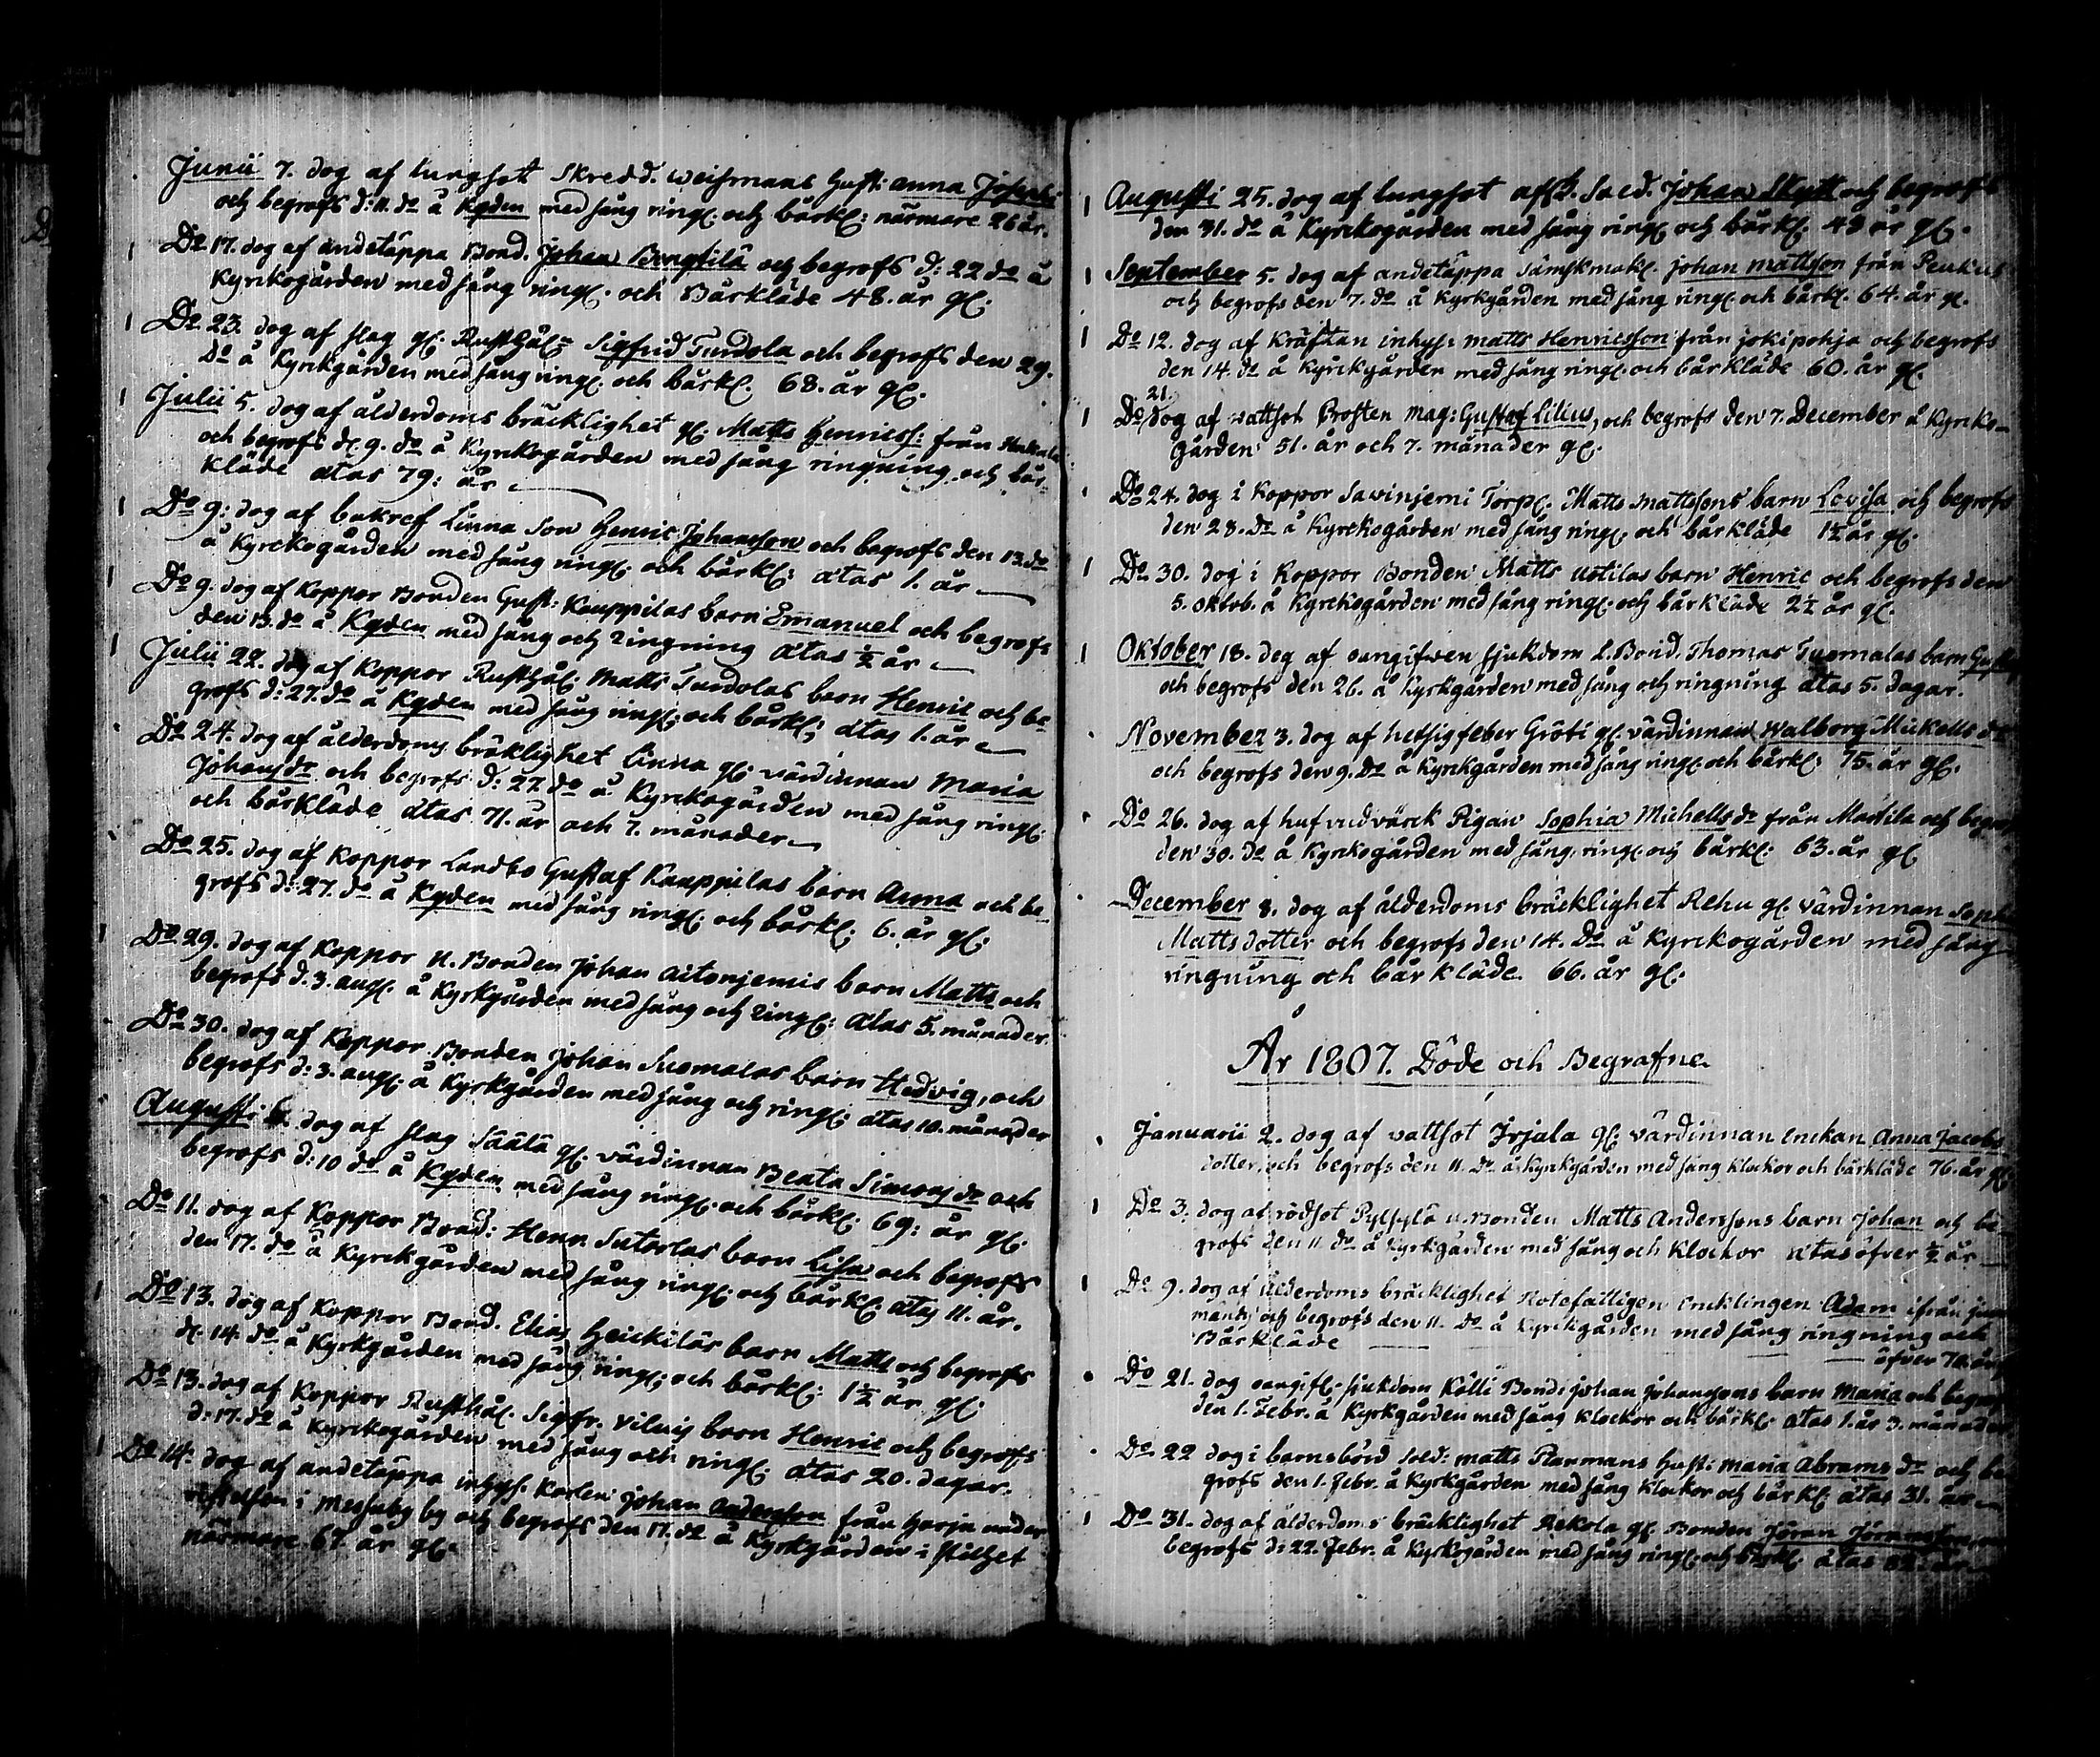 Junii 7. dog af lungsot Skredd. Weismans hust: Anna Josephs
och begrofs d: 11. do å Kgden med sång ring: och bårkl: närmare 26 år.
Do 17. dog af andetäppa Bond. Johan Bengtilä och begrofs d: 22 do å
Kyrkogården med sång ring: och Bårkläde 48. år gl:
Do 23. dog af slag gl: Rusthål: Sigfrid Turdola och begrofs den 29.
do å Kyrkgården med sång ring: och bårkl: 68. år gl:
Julii 5. dog af ålderdoms bräcklighet gl: Matts Henricss: från
och begrofs d: 9. do å Kyrkogården med sång ringning och bår-
kläde ätas 79: år
Do 9: dog af bukref Linna Son Henric Johansson och begrofs den 13. do
å Kyrckogården med sång ring: och bårkl: ätas 1. år
Do 9. dog af Koppor Bonden Gust: Kauppilas barn Emanuel och begrofs
den 13. do å Kgden med sång och ringning ätas ½ år
Julii 22. dog af Koppor Rusthål: Matts Turdolas barn Henric och be-
grofs d: 27. do å Kgden med sång ring: och bårkl: ätas 1. år
Do 24. dog af ålderdoms bräklighet Linna gl: värdinnan Maria
Johansdr och begrofs d: 27 do å Kyrckogården med sång ring:
och bårkläde ätas 71. år och 7. månader
Do 25. dog af Koppor Landbo Gustaf Kauppilas barn Anna och be-
grofs d: 27. do å Kgden med sång ring: och bårkl: 6. år gl:
Do 29. dog af Koppor U. Bonden Johan Aitonjemis barn Matts och
begrofs d. 3. aug: å Kyrkgården med sång och ring: ätas 5. månader
Do 30. dog af Koppor Bonden Johan Suomalas barn Hedvig, och
begrofs d: 3. aug: å Kyrkgården med sång och ring: ätas 10. månader
Augusti 6. dog af slag Säätä gl: värdinnan Beata Simonsdr och
begrofs d: 10 do å Kgden med sång ring: och bårkl: 69: år gl:
Do 11. dog af Koppor Bond: Henr Sutorlas barn Lisa och begrofs
den 17. do å Kyrckgården med sång ring: och bårkl: ätas 11. år.
Do 13. dog af Koppor Bond. Elias Heickiläs barn Matts och begrofs
d. 14. do å Kyrkgården med sång ring: och bårkl: 1½ år gl:
Do 13. dog af Koppor Rusthål. Sigfr. Viluis barn Henric och begrofs
d: 17. do å Kyrckogården med sång och ring: ätas 20. dagar.
Do 14. dog af andetäppa inhys. Karlen Johan Andersson från Harju under
i Messuby by och begrofs den 17. do å Kyrkgården i stilhet
närmare 67. år gl:
Augusti 25. dog af lungsot afsk. Sold. Johan Skytt och begrofs
den 31. do å Kyrckogården med sång ring: och bårkl. 49 år gl:
September 5. dog af andetäppa Sämskmak. Johan Mattson från
och begrofs den 7. do å Kyrkgården med sång ring: och bårkl. 64. år gl.
Do 12. dog af Kräftan inhys: Matts Henricsson från Jokipohja och begrofs
den 14. do å Kyrckgården med sång ring: och bårkläde 60. år gl.
21.
Do dog af Wattsot Prosten Mag: Gustaf Lilius, och begrofs den 7. December å Kyrcko-
gården 51. år och 7. månader gl:
Do 24. dog i Koppor Savinjemi Torp: Matts Mattssons barn Lovisa och begrofs
den 28. do å Kyrckogården med sång ring: och bårkläde 1½ år gl.
Do 30. dog i Koppor Bonden Matts Uotilas barn Henric och begrofs den
5. Oktob. å Kyrckogården med sång ring: och bårkläde 2½ år gl:
Oktober 18. dog af oangifwen sjukdom L. Bond. Thomas Tuomalas barn
och begrofs den 26. å Kyrkgården med sång och ringning ätas 5. dagar.
November 3. dog af hetsig feber Gröti gl. värdinnan Walborg Mickells dr
och begrofs den 9. do å Kyrckgården med sång ring: och bårkl: 75. år gl:
Do 26. dog af hufvudvärck Pigan Sophia Michellsdr från Martila och begrof
den 30. do å Kyrckogården med sång, ring: och bårkl: 63. år gl
December 8. dog af ålderdoms bräcklighet Rehu gl. värdinnan Sophia
Mattsdotter och begrofs den 14. do å Kyrckogården med sång
ringning och bårkläde 66. år gl:
År 1807. Döde och Begrafne
Januarii 2. dog af vattsot Irjala gl: värdinnan enckan Anna Jacobs
dotter, och begrofs den 11. do å Kyrckgården med sång klockor och bårkläde 76. år gl:
Do 3. dog af rödsot Pylsylä U. Bonden Matts Anderssons barn Johan och be-
grofs den 11 do å Kyrckgården med sång och Klockor ätas öfver ½ år
Do 9. dog af ålderdoms bräcklighet Rotefattigen Encklingen Adam ifrån
och begrofs den 11. do å Kyrckgården med sång ringning och
Bårkläde öfver 70. år
Do 21. dog oangif: sjukdom Kölli Bond: Johan Johanssons barn Maria och begrof
den 1. Febr. å Kyrkgården med sång klockor och bårkl: ätas 1. år 3. månader
Do 22 dog i barnsbörd Sold: Matts Planmans hust: Maria Abrams dr och be
grofs den 1. Febr. å Kyrkgården med sång klockor och bårkl. ätas 31. år
Do 31. dog af ålderdoms bräcklighet Reckola gl: Bonden Jöran
begrofs d: 22. Febr. å Kyrkogården med sång ring: och bårkl: ätas